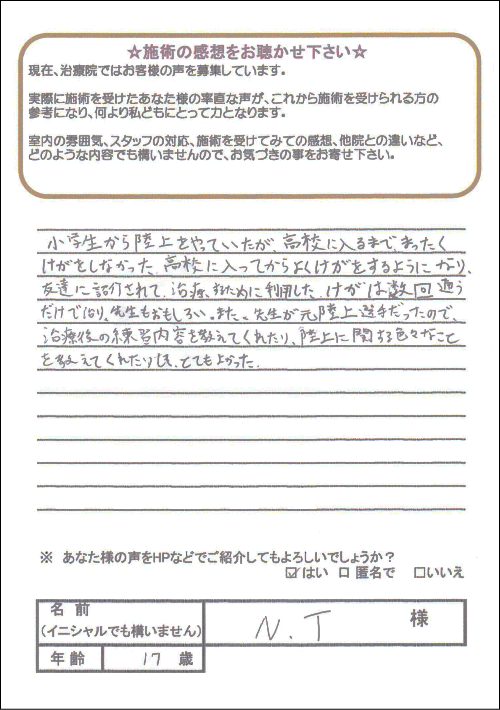 ☆施術の感想をお聴かせ下さい☆
現在、治療院ではお客様の声を募集しています。
実際に施術を受けたあなた様の率直な声が、これから施術を受けられる方の
参考になり、何より私どもにとって力となります。
室内の雰囲気、スタッフの対応、施術を受けてみての感想、他院との違いなど、
どのような内容でも構いませんので、お気づきの事をお寄せ下さい。
小学生から陸上をやっていたが、高校に入るまで、まったく
けがをしなかった。高校に入ってからよくけがをするようになり、
友達に紹介されて、治療するために利用した。けがは数回通う
だけで治り、先生もおもしろい。また、先生が元陸上選手だったので、
治療後の練習内容を教えてくれたり、陸上に関する色々なこと
を教えてくれたりして、とてもよかった。
※ あなた様の声をHPなどでご紹介してもよろしいでしょうか？
☑はい □ 匿名で □いいえ
名 前
(イニシャルでも構いません)
N.T 様
年 齢 17 歳